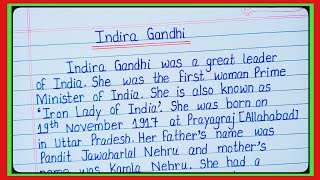 Indira Gandhi
Indira Gandhi was a great leader
of India. She was the first woman Prime
Minister of India. She is also known as
'Iron Lady of India'. She was born on
19th November 1917 at Prayagraj [Allahabad]
in Uttar Pradesh. Her Father's name was
Pandit Jawaharlal Nehru and mother's
name was Kamla Nehru. She had a